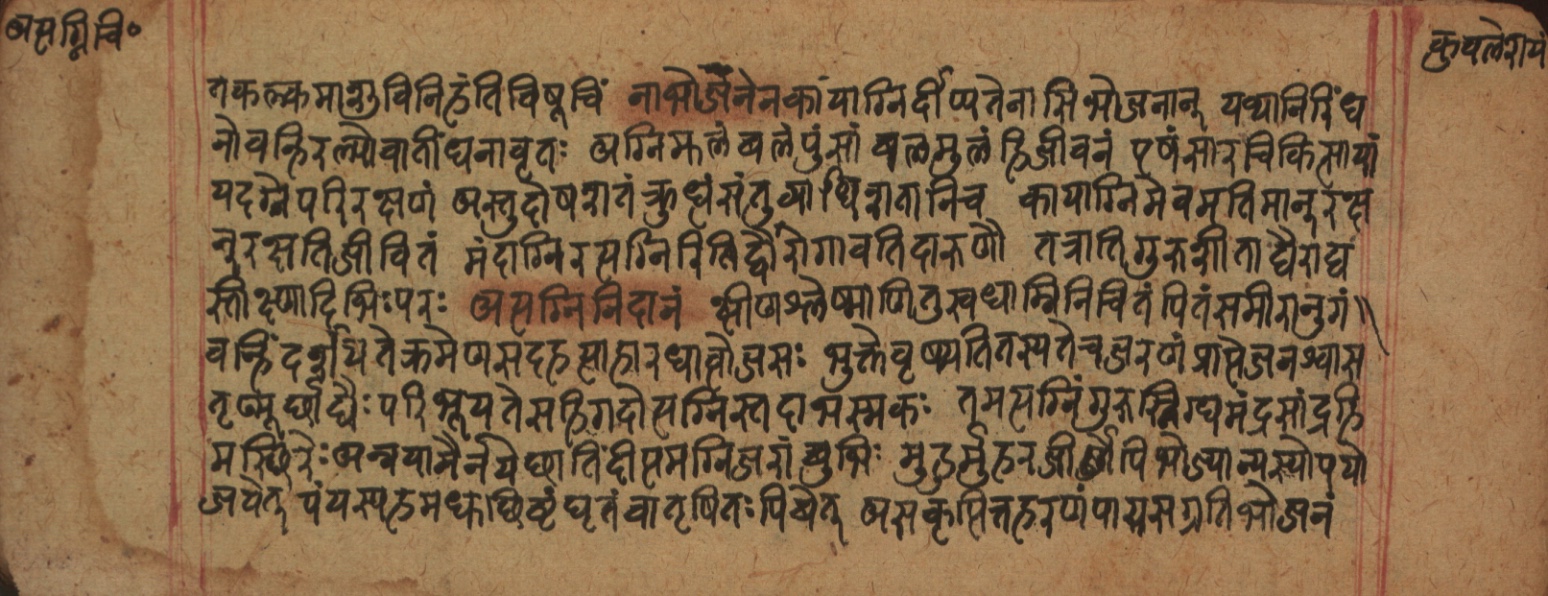 असग्निचि॰
कुवलेराय
तकल्कमाशुविनिहंतिविषूचिं नाभोजनेनकायाग्निर्दीप्यतेनातिभोजनात् यथानिरिंध
नोवन्हिरल्पोवातींधनावृतः अग्निमूलंबलंपुंसां बलमूलंहिजीवनं एषंसारचिकित्सायां
यदग्नेपरिरक्षणं अस्तुदोषशतंक्रुधंसंतुव्याधिशतानिच कायाग्निमेवमतिमान्रक्ष
न्रक्षतिजीवितं मंदाग्निरसग्निरितिद्वौरोगावतिदारुणौ तत्रातिगुरुशीताद्यैराद्य
स्तीक्ष्णादिभिःपरः असग्निनिदानं क्षीणश्लेष्माणितुस्वधाम्निनिचितंपितंसमीरानुगं
वन्हिंदर्शयितेक्रमेणसदहत्साहारधात्वोजसः भुक्तेवृष्यतितस्यतेचजरणंत्रासैजनश्वास
तृण्मूर्छाद्यैःपरिभूयतेसहिगदोसग्निस्तदाभस्मकः तमसग्निंगुरुस्निग्धमंद्रसांद्रहि
मस्छिरैःअन्नपानैर्नयेछांतिंदीप्तमग्निजरांबुभिः मुहुर्मुहुरजीर्णेपिभोज्यान्यस्योपयो
जयेत् पंयस्पहमधूछिष्टंघृतंवातृषितःपिबेत् असकृत्पित्तहरणंपायसप्रतिभोजनं